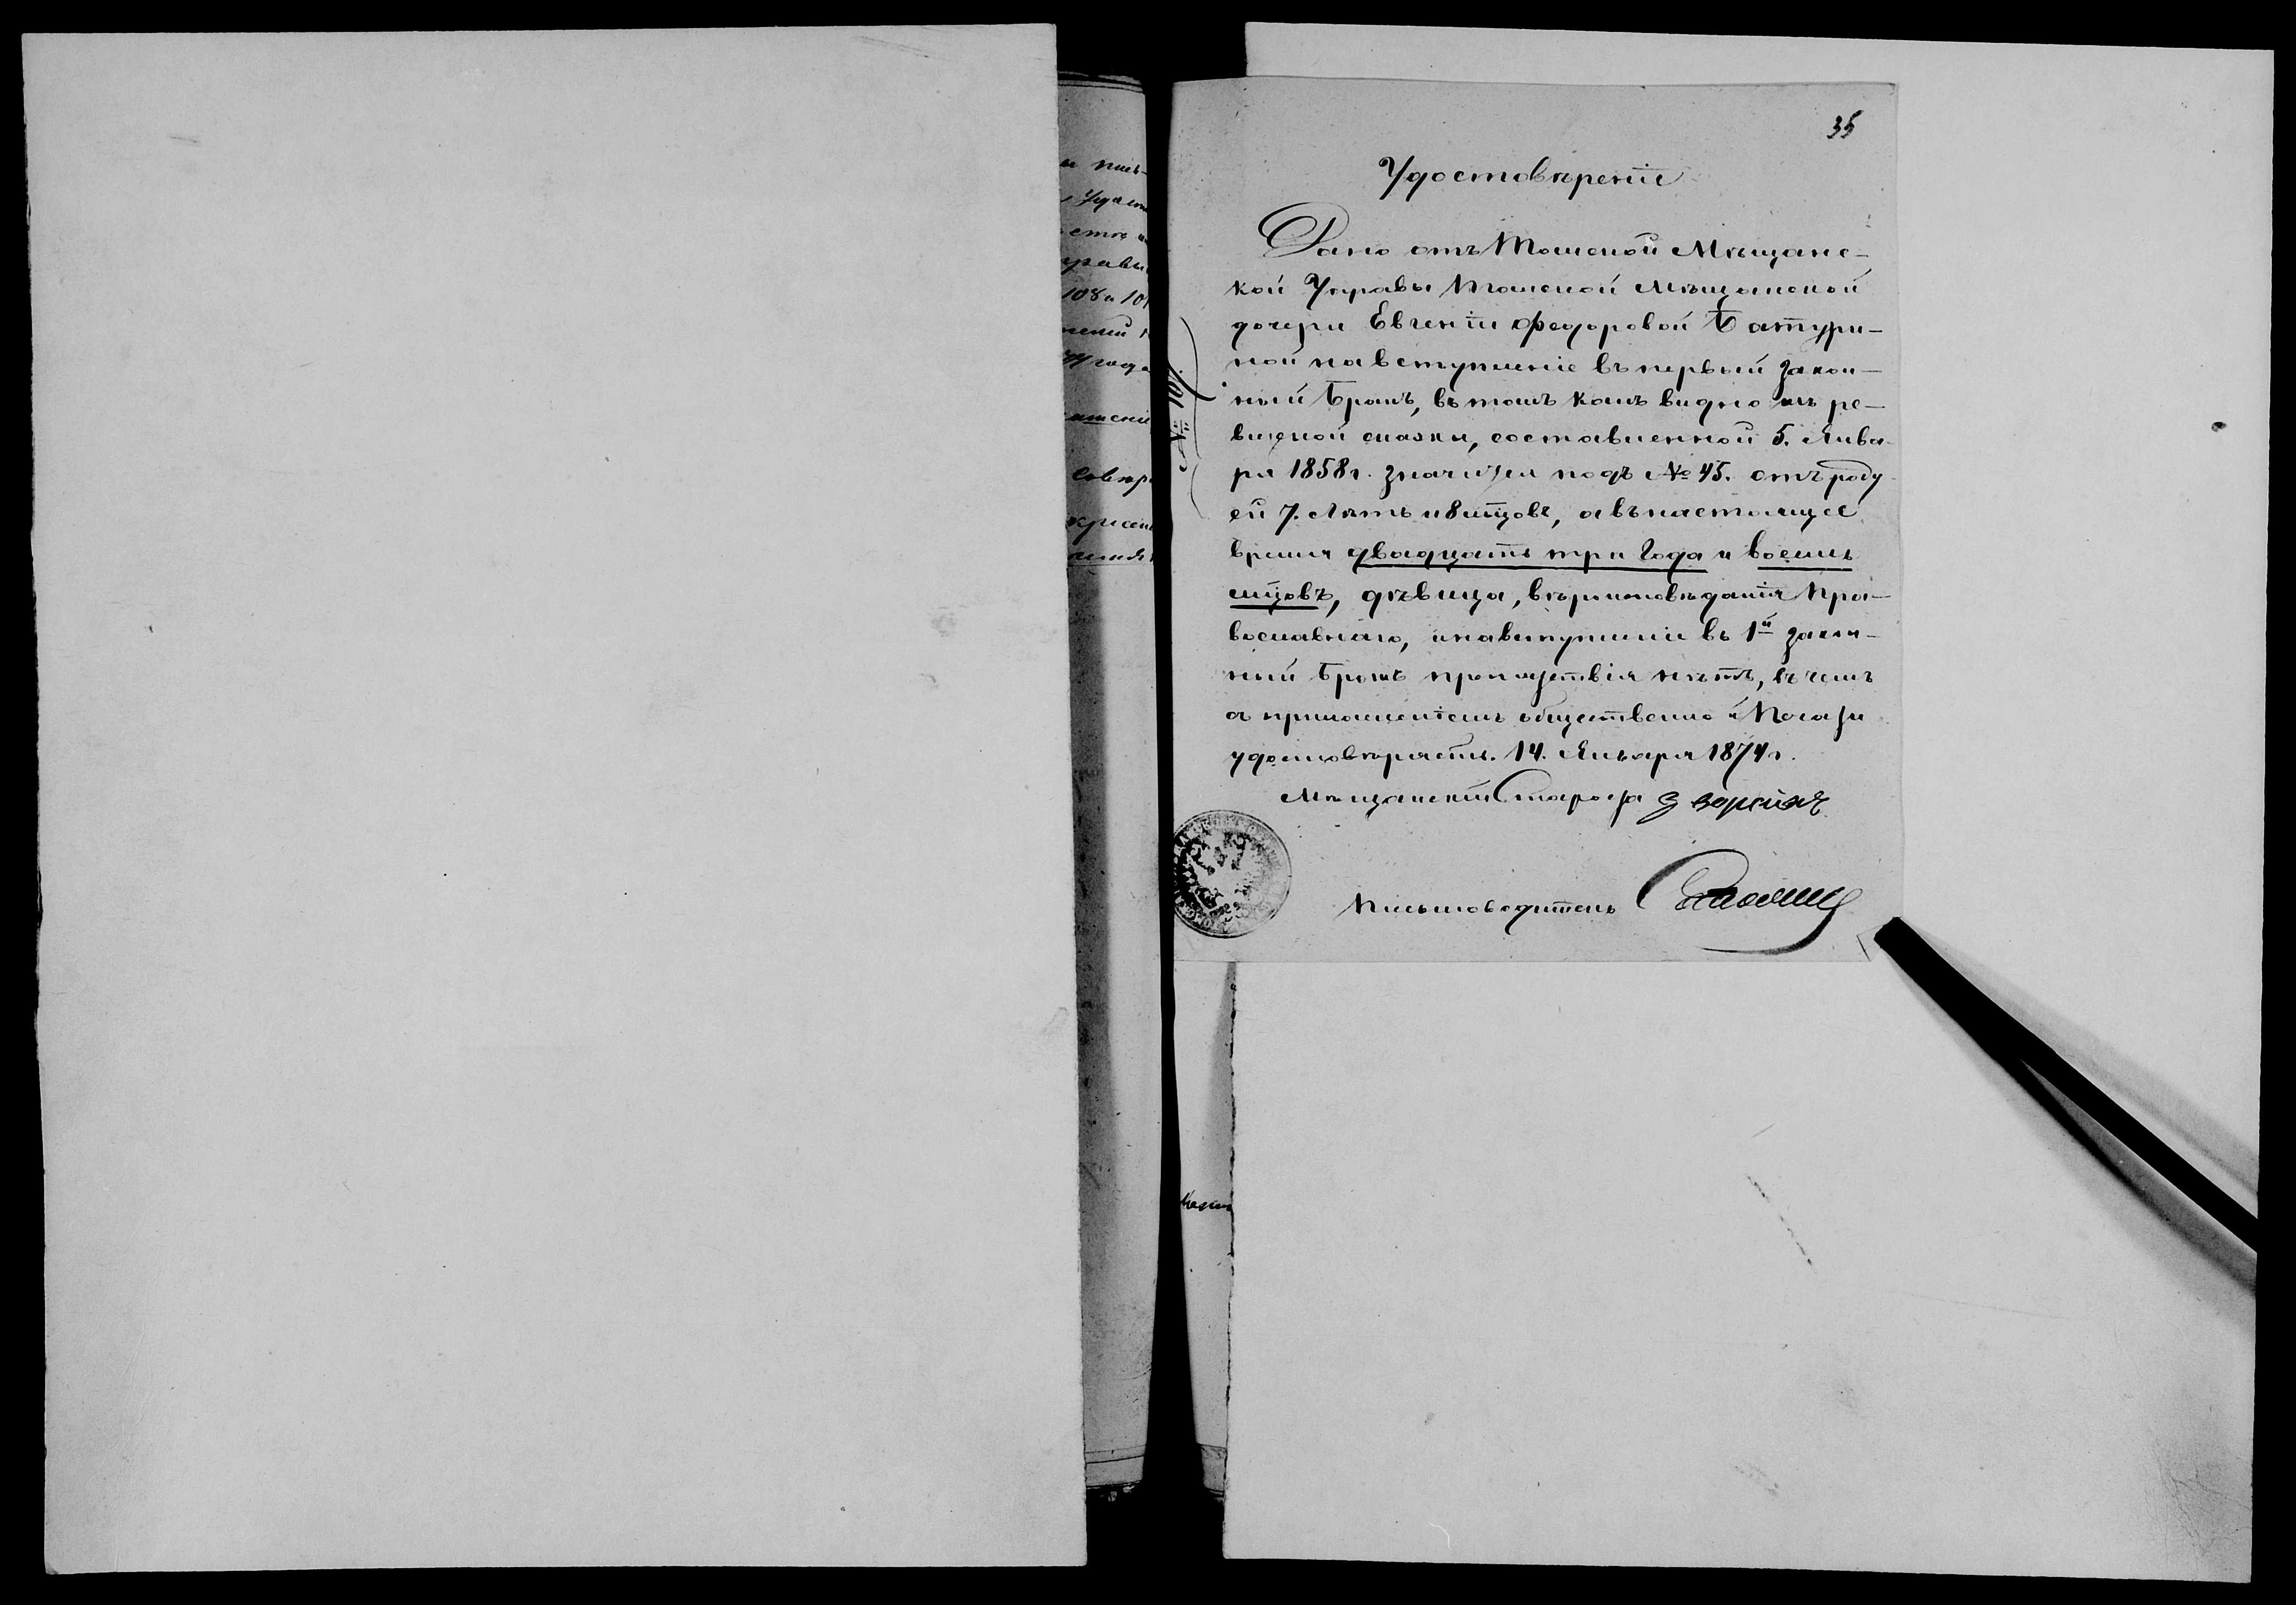 35
Удостовѣренiе
Дано отъ Томской Мѣщанс-
кой Управы Томской Мѣщанской
дочери Евгенiи Федоровой Батури-
ной на вступленiе въ первый закон-
ный бракъ, въ томъ какъ видно изъ ре-
визской сказки, составленной 5. Янва-
ря 1858 г. значится подъ № 45. отъ роду
ей 7. Лѣтъ и 8 мцовъ, а въ настоящее
время двадцать три года и восемь
мцовъ, дѣвица, вѣроисповѣданiя Пра-
вославнаго, и на вступленiе въ 1й закон-
ный бракъ препятствiя нѣтъ, въ чемъ
съ приложенiемъ общественной Печати
удостовѣряетъ. 14. Января 1874 г.
Мѣщанскiй Староста
Письмоводитель
№ 101